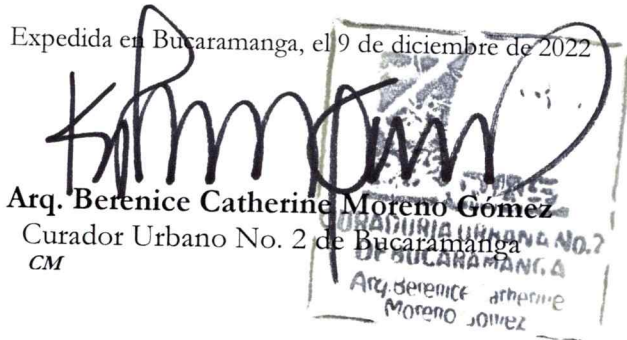 Expedida en Bucaramanga, el 9 de diciembre de 2022
Arq. Berenice Catherine Moreno Gómez
Curador Urbano No. 2 de Bucaramanga
CM
URBANA NO.2
DE BUCARAMANGA
Arq. Berenice
Moreno